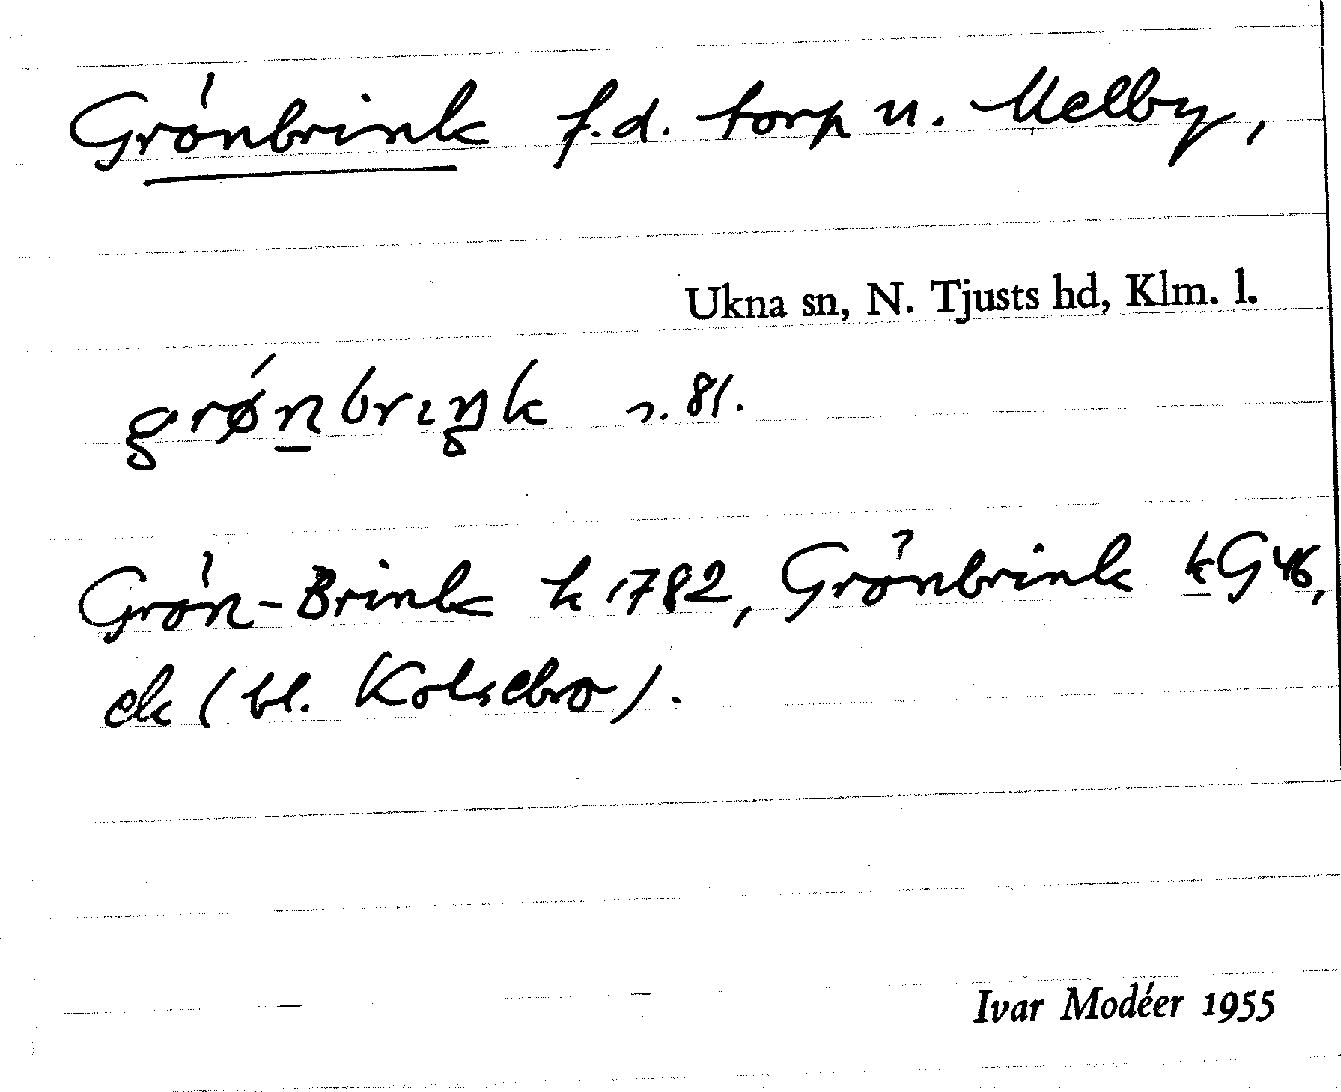 Grönbrink f.d. torp u. Melby,
Ukna sn, N. Tjusts hd, Klm. l.
grǿn̲brıŋk s. 81.
Grön-Brink k 1782, Grönbrink kG 46,
ek (bl. Kolsebro).
Ivar Modéer 1955